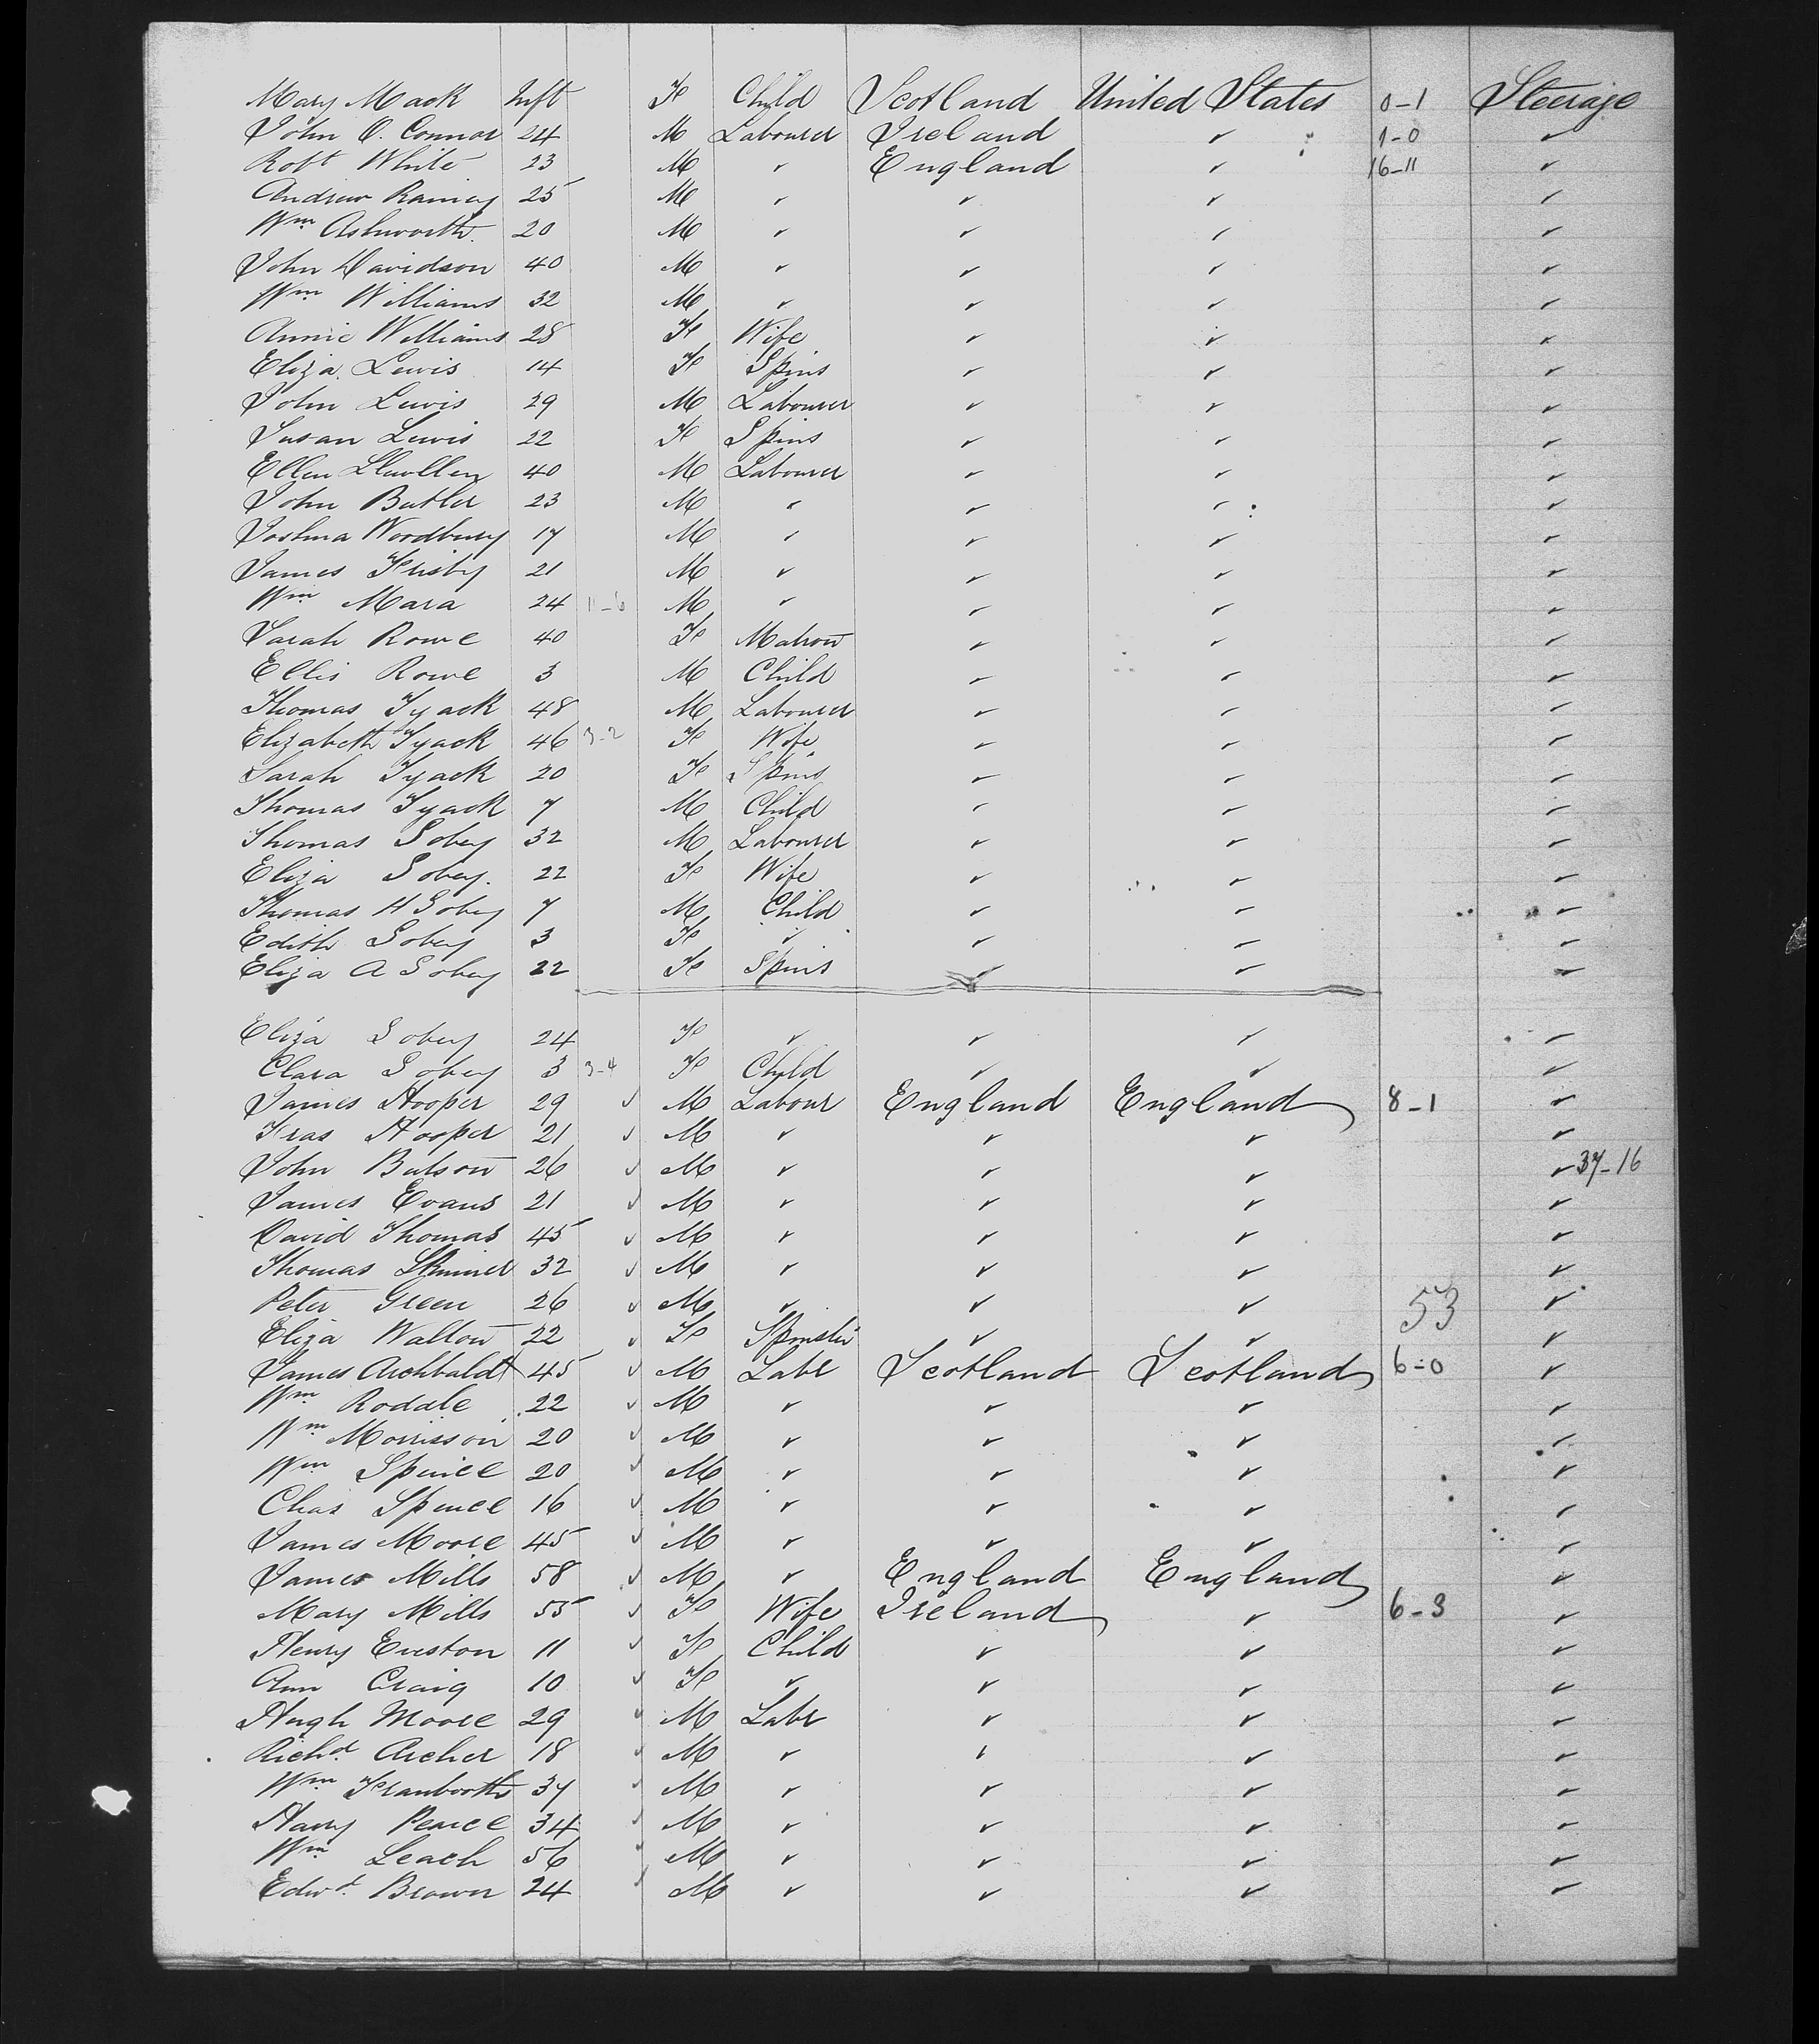 Mary Mack Inft F Child Scotland United States 0-1 Steerage
John O. Connor 24 M Labourer Ireland ✓ 1-0 ✓
Robt White 23 M ✓ England ✓ 16-11 ✓
Andrew Ramsey 25 M ✓ ✓ ✓ ✓
Wm Ashworth 20 M ✓ ✓ ✓ ✓
John Davidson 40 M ✓ ✓ ✓ ✓
Wm Williams 32 M ✓ ✓ ✓ ✓
Annie Williams 28 F Wife ✓ ✓ ✓
Eliza Lewis 14 F Spins ✓ ✓ ✓
John Lewis 29 M Labourer ✓ ✓ ✓
Susan Lewis 22 F Spins ✓ ✓ ✓
Ellen Llewllen 40 M Labourer ✓ ✓ ✓
John Butler 23 M ✓ ✓ ✓ ✓
Joshua Woodbury 17 M ✓ ✓ ✓ ✓
James Frisby 21 M ✓ ✓ ✓ ✓
Wm Mara 24 11-6 M ✓ ✓ ✓ ✓
Sarah Rowe 40 F Matron ✓ ✓ ✓
Ellis Rowe 3 M Child ✓ ✓ ✓
Thomas Tyack 48 M Labourer ✓ ✓ ✓
Elizabeth Tyack 46 3-2 F Wife ✓ ✓ ✓
Sarah Tyack 20 F Spins ✓ ✓ ✓
Thomas Tyack 7 M Child ✓ ✓ ✓
Thomas Sobey 32 M Labourer ✓ ✓ ✓
Eliza Sobey. 22 F Wife ✓ ✓ ✓
Thomas H Sobey 7 M Child ✓ ✓ ✓
Edith Sobey 3 F ✓ ✓ ✓ ✓
Eliza A Sobey 22 F Spins ✓ ✓ ✓
Eliza Sobey 24 F ✓ ✓ ✓ ✓
Clara Sobey 3 3-4 F Child ✓ ✓ ✓
James Hooper 29 ✓ M Labour England England 8-1 ✓
Fras Hooper 21 ✓ M ✓ ✓ ✓ ✓
John Batson 26 ✓ M ✓ ✓ ✓ ✓ 37-16
James Evans 21 ✓ M ✓ ✓ ✓ ✓
David Thomas 45 ✓ M ✓ ✓ ✓ ✓
Thomas Skinner 32 ✓ M ✓ ✓ ✓ ✓
Peter Green 26 ✓ M ✓ ✓ ✓ 53 ✓
Eliza Walton 22 ✓ F Spinster ✓ ✓ ✓
James Archbald 45 ✓ M Labr Scotland Scotland 6-0 ✓
Wm Roddle 22 ✓ M ✓ ✓ ✓ ✓
Wm Morrisson 20 ✓ M ✓ ✓ ✓ ✓
Wm Spence 20 ✓ M ✓ ✓ ✓ ✓
Chas Spence 16 ✓ M ✓ ✓ ✓ ✓
James Moore 45 ✓ M ✓ ✓ ✓ ✓
James Mills 58 ✓ M ✓ England England ✓
Mary Mills 55 ✓ F Wife Ireland ✓ 6-3 ✓
Henry Euston 11 ✓ F Child ✓ ✓ ✓
Ann Craig 10 ✓ F ✓ ✓ ✓ ✓
Hugh Moore 29 ✓ M Labr ✓ ✓ ✓
Richd Archer 18 ✓ M ✓ ✓ ✓ ✓
Wm 37 ✓ M ✓ ✓ ✓ ✓
Harry Pearce 34 ✓ M ✓ ✓ ✓ ✓
Wm Leach 56 ✓ M ✓ ✓ ✓ ✓
Edwd Brown 24 ✓ M ✓ ✓ ✓ ✓